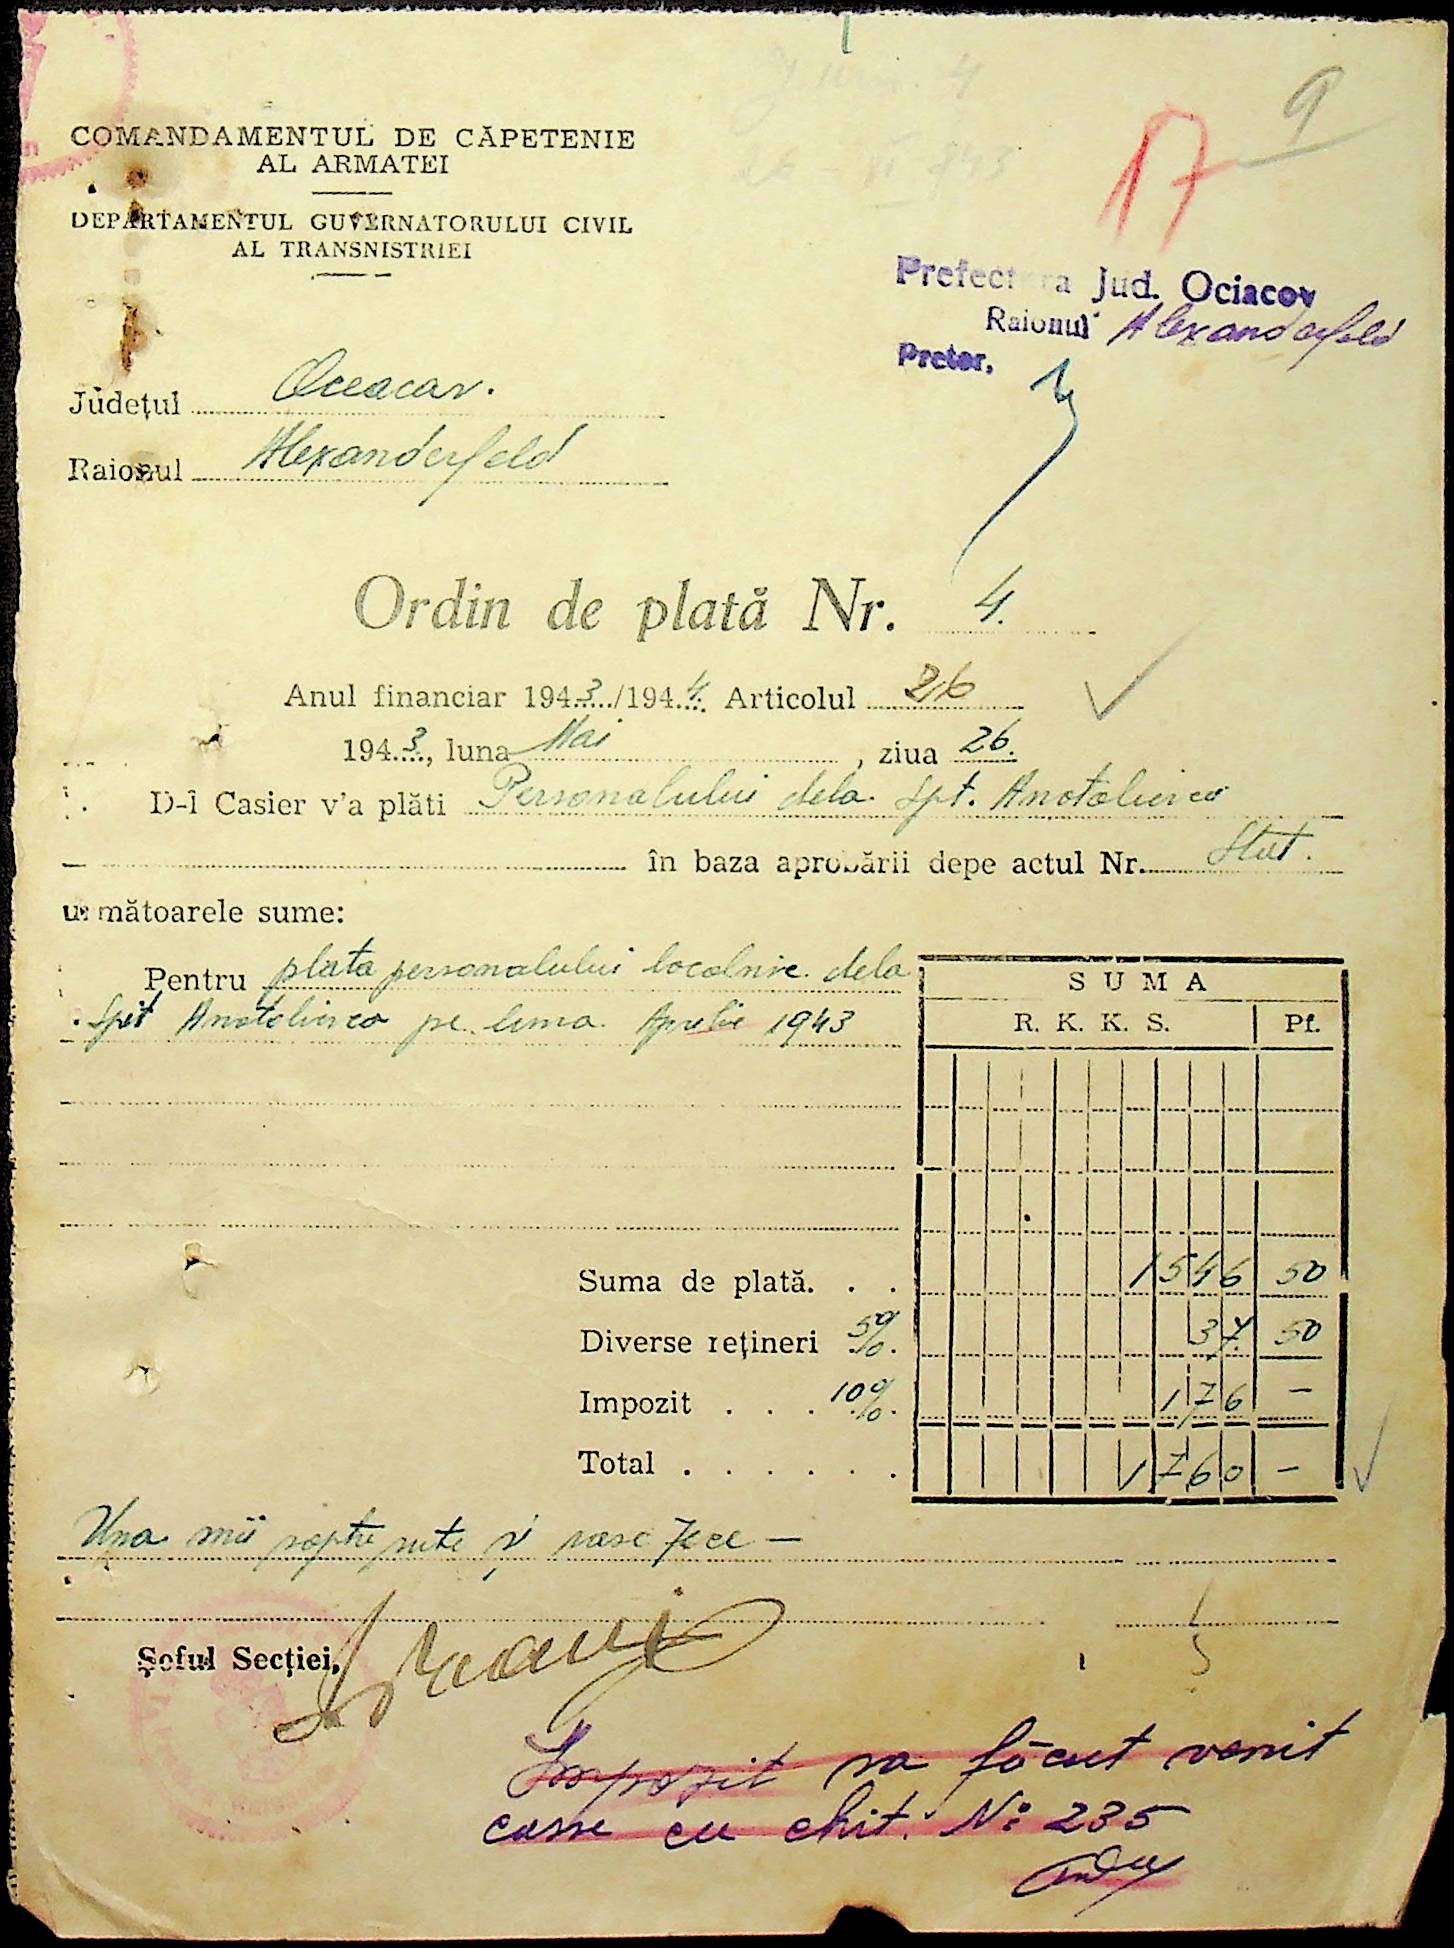 9
17
COMANDAMENTUL DE CĂPETENIE
AL ARMATEI
DEPARTAMENTUL GUVERNATORULUI CIVIL
AL TRANSNISTRIEI
Prefectura Jud. Ociacov
Raionul Alexanderfeld
Pretor,
Județul Oceacov.
Raionul Alexanderfeld
Ordin de plată Nr. 4.
Anul financiar 1943/1944. Articolul 26
1943, luna Mai, ziua 26.
D-l Casier v'a plăti Personalului dela Spt. Anatolievca
în baza aprobării depe actul Nr. Stat.
următoarele sume:
Pentru plata personalului localnic dela
Spit Anatolievca pe luna Aprilie 1943
SUMA
R. K. K. S. Pf.
Suma de plată. . . 1546 50
Diverse rețineri 5% . 37. 50
Impozit . . . 10% . 176 —
Total . . . . . . 1760 —
Una mii șapte sute și șase zece —
Șeful Secției,
Impozit sa făcut venit
casse cu chit. No 235